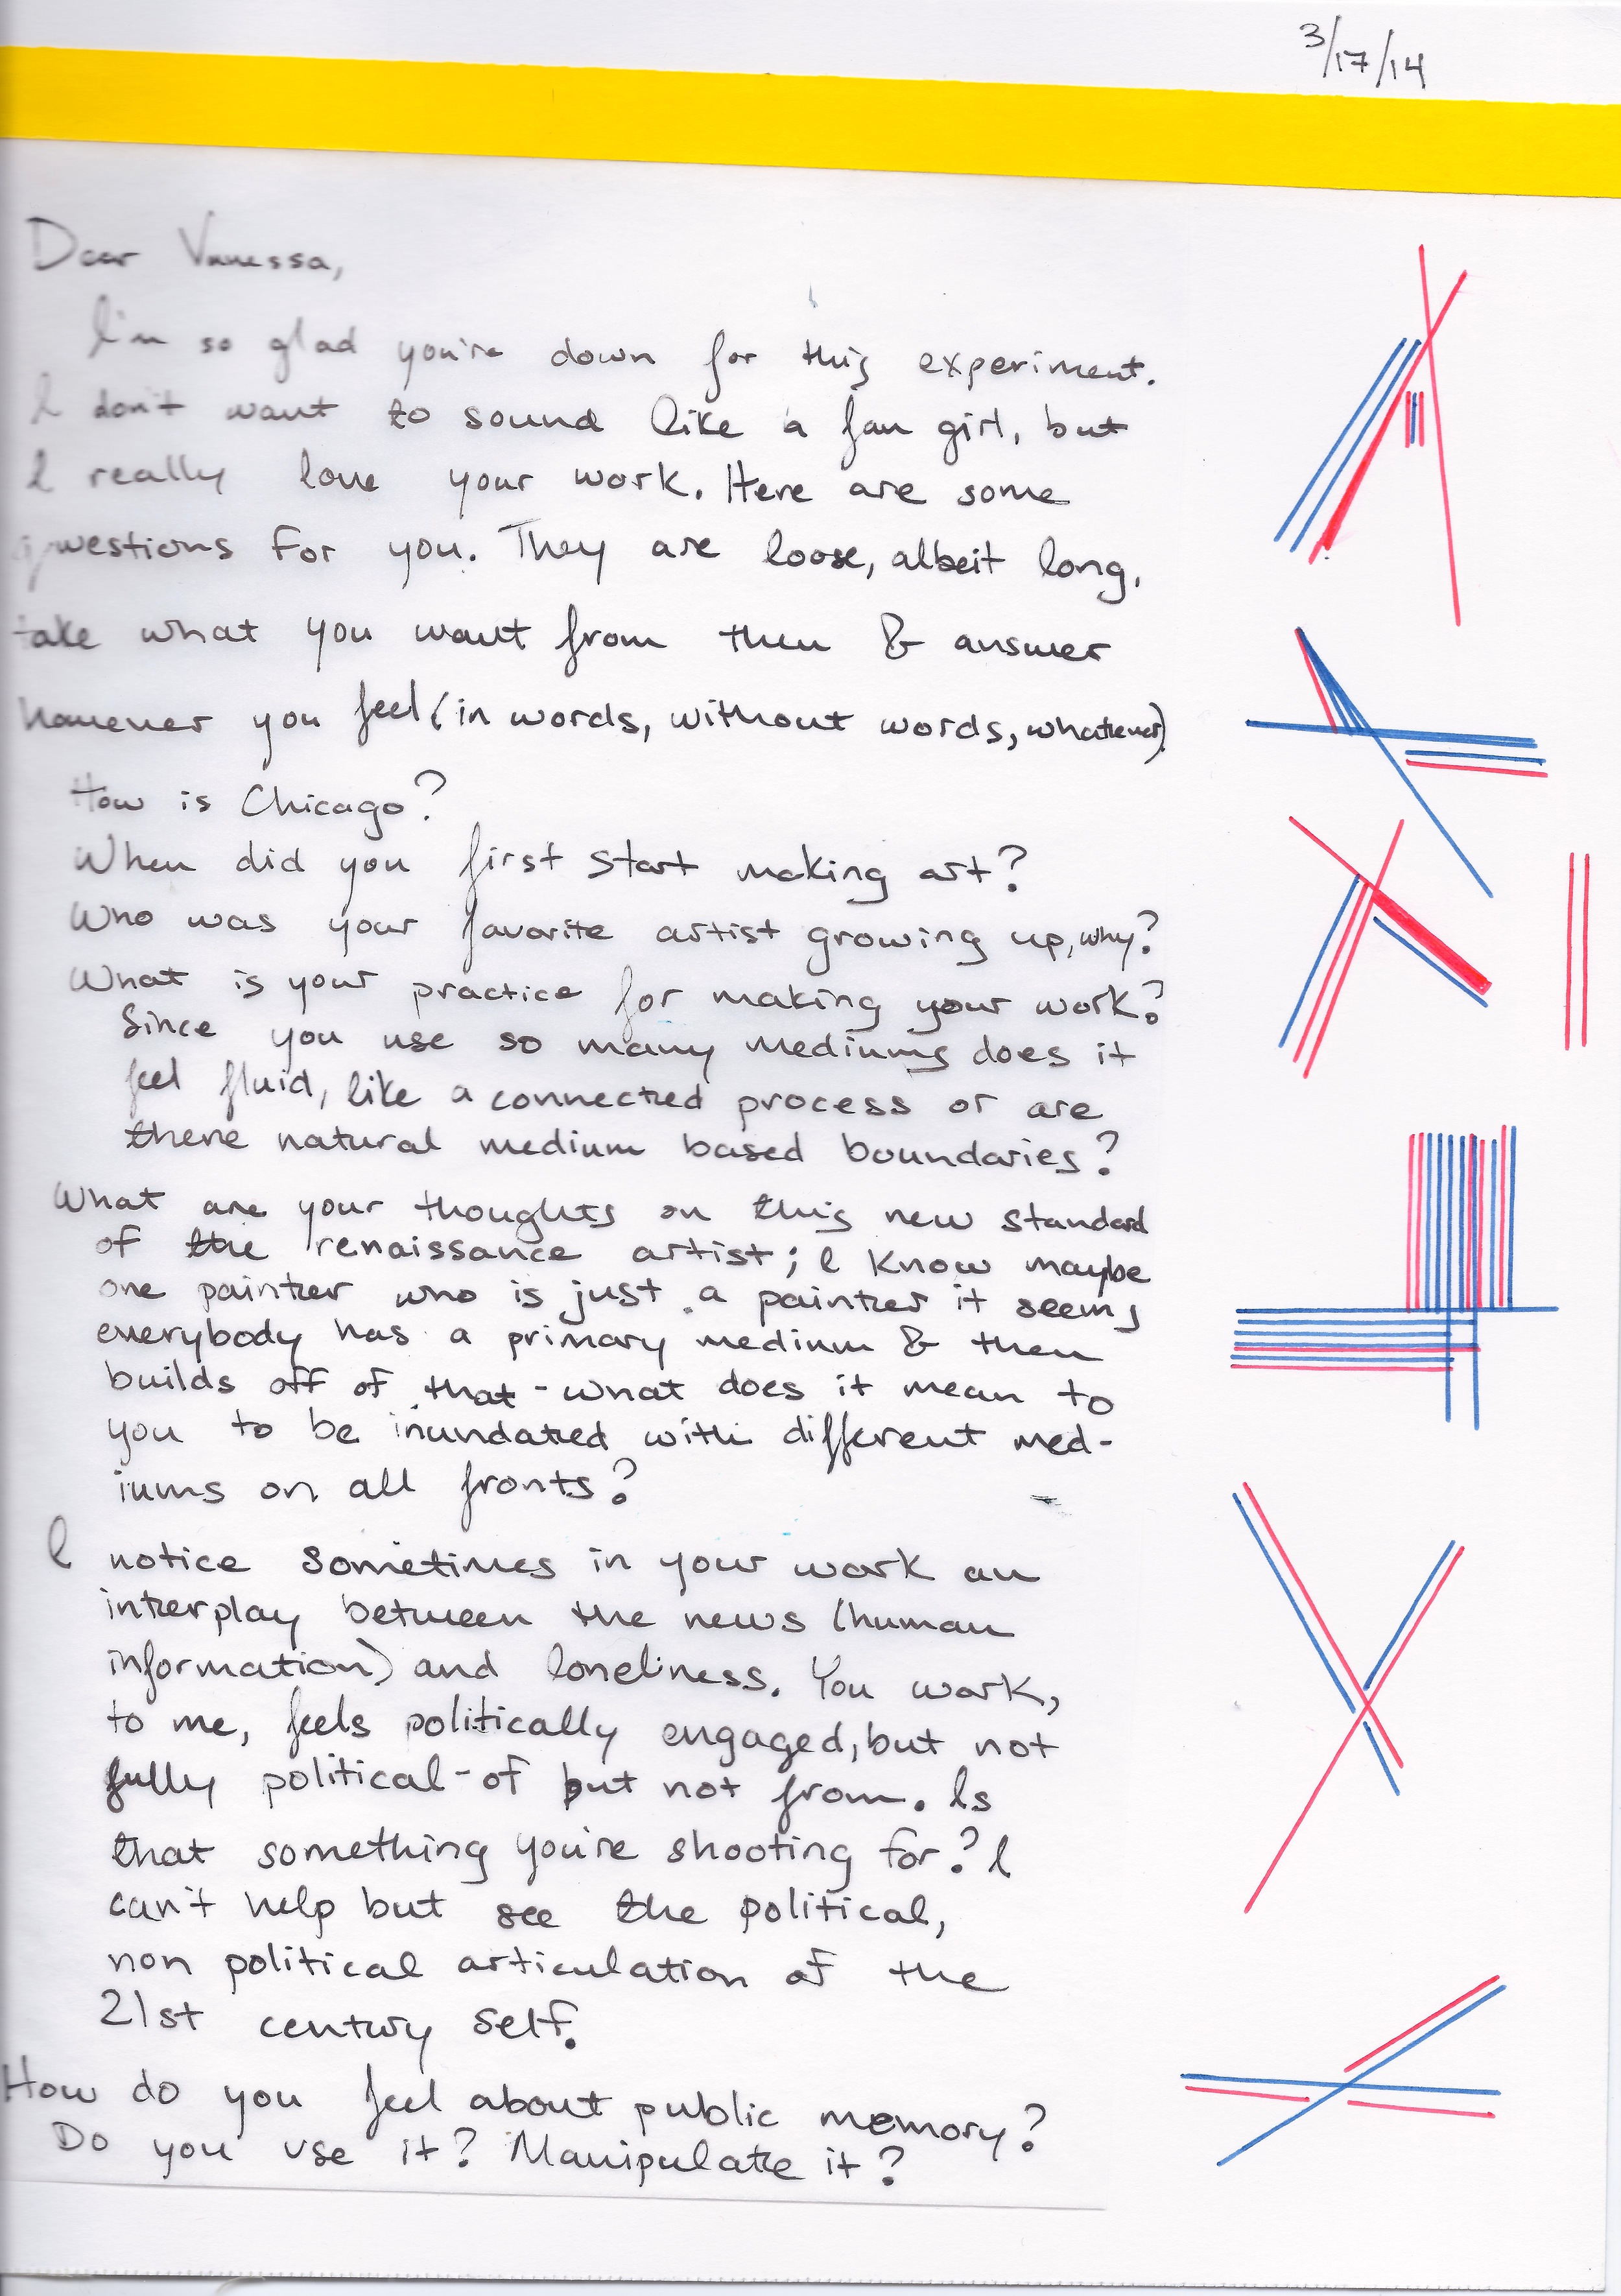 3/17/14
Dear Vanessa,
I'm so glad you're down for this experiment.
I don't want to sound like a fan girl, but
I really love your work. Here are some
questions for you. They are loose, albeit long,
take what you want from then & answer
however you feel (in words, without words, whatever)
How is Chicago?
When did you first start making art?
Who was your favorite artist growing up, why?
What is your practice for making your work?
Since you use so many mediums does it
feel fluid, like a connected process or are
there natural medium based boundaries?
What are your thoughts on this new standard
of the renaissance artist; I know maybe
one painter who is just a painter it seems
everybody has a primary medium & then
builds off of that - what does it mean to
you to be inundated with different med-
iums on all fronts?
I notice sometimes in your work an
interplay between the news (human
information) and loneliness. You work,
to me, feels politically engaged, but not
fully political - of but not from. Is
that something you're shooting for? I
can't help but see the political,
non political articulation of the
21st century self.
How do you feel about public memory?
Do you use it? Manipulate it?